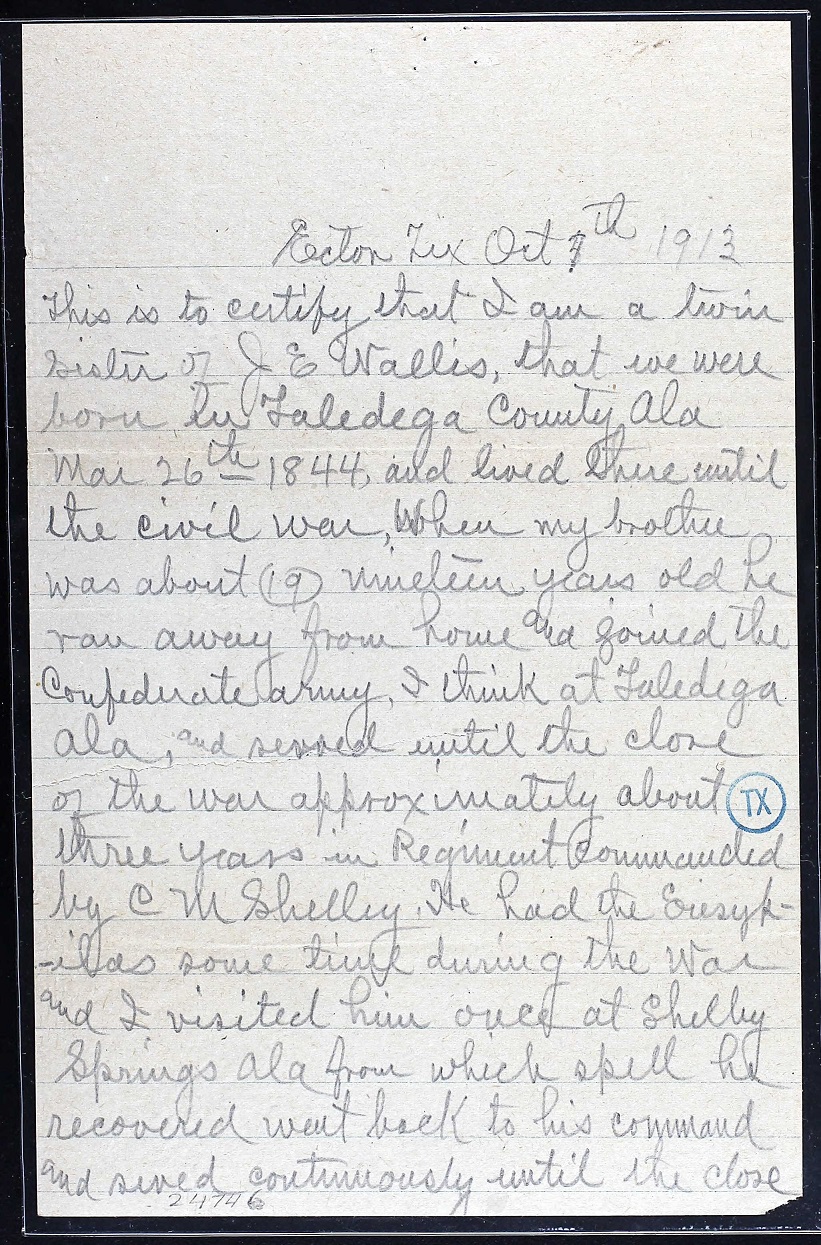 Ector Tex Oct 7th 1913
This is to certify that I am a twin
sister of J E Wallis, that we were
born in Taledega County Ala
Mar 26th 1844, and lived there until
the civil war, When my brother
was about (19) nineteen years old he
ran away from home and joined the
Confederate army, I think at Taledega
Ala, and served until the close
of the war approximately about
TX
three years in Regiment Commanded
by C M Shelley. He had the Eresyp-
-ilas some time during the War
and I visited him once at Shelby
Springs Ala from which spell he
recovered went back to his command
and served continuously until the close
24746